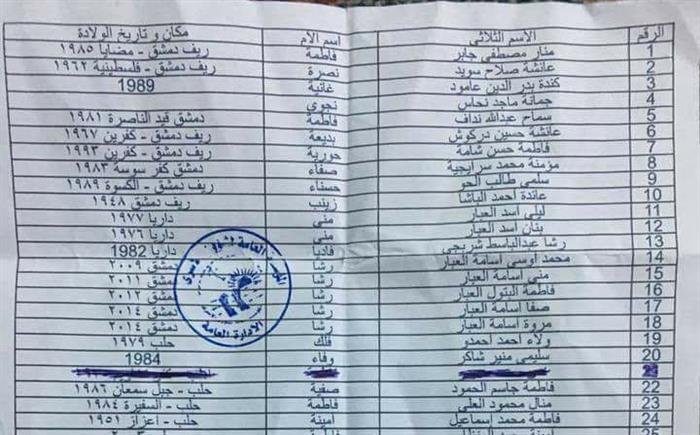 الرقم الاسم الثلاثي اسم الام مكان و تاريخ الولادة
1 منار مصطفى جابر فاطمة ريف دمشق - مضايا ١٩٨٥
2 عائشة صلاح سويد نصرة ريف دمشق - فلسطينية ١٩٦٢
3 كندة بدر الدين عامود غانية 1989
4 جمانة ماجد نحاس نجوى
5 سماح عبدالله نداف فاطمة دمشق قيد الناصرة ١٩٨١
6 عائشة حسين دركوش بديعة ريف دمشق - كفرين ١٩٦٧
7 فاطمة حسن شامة حورية ريف دمشق - كفرين ١٩٩٣
8 مؤمنة محمد سرايجية صفاء دمشق كفر سوسة ١٩٨٣
9 سلمى طالب الحو حسناء ريف دمشق - الكسوة ١٩٨٩
10 عائدة احمد الباشا زينب ريف دمشق ١٩٤٨
11 ليلى اسد العبار منى داريا ١٩٧٧
12 بنان اسد العبار منى داريا ١٩٧٦
13 رشا عبدالباسط شربجي فاديا داريا 1982
14 محمد اوسي اسامة العبار رشا دمشق ٢٠٠٩
15 منى اسامة العبار رشا دمشق ٢٠١١
16 فاطمة البتول العبار رشا دمشق ٢٠١٢
17 صفا اسامة العبار رشا دمشق ٢٠١٤
18 مروة اسامة العبار رشا دمشق ٢٠١٤
19 ولاء احمد احمدو فلك حلب ١٩٧٩
20 سليمى منير شاكر وفاء 1984
22 فاطمة جاسم الحمود صفية حلب - جبل سمعان ١٩٨٦
23 منال محمود العلي فاطمة حلب - السفيرة ١٩٨٤
24 فاطمة محمد اسماعيل امينة حلب - اعزاز ١٩٥١
25
الادارة العامة